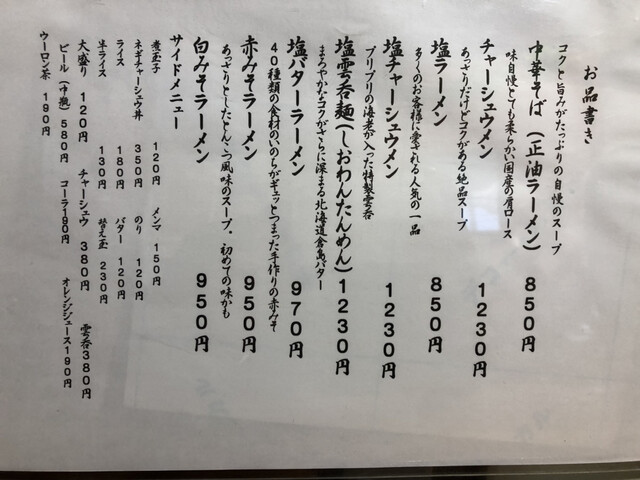 お品書き
コクと旨みがたっぷりの自慢のスープ
中華そば（正油ラーメン）850円
味自慢とても柔らかい国産の肩ロース
チャーシュウメン 1230円
あっさりだけどコクがある絶品スープ
塩ラーメン 850円
多くのお客様に愛される人気の一品
塩チャーシュウメン 1230円
プリプリの海老が入った特製雲呑
塩雲呑麺（しおわんたんめん）1230円
まろやかなコクがさらに深まる北海道倉島バター
塩バターラーメン 970円
40種類の食材のいのちがギュッとつまった手作りの赤みそ
赤みそラーメン 950円
あっさりとしたとんこつ風味のスープ、初めての味かも
白みそラーメン 950円
サイドメニュー
煮玉子 120円 メンマ 150円
ネギチャーシュウ丼 350円 のり 120円
ライス 180円 バター 120円
半ライス 130円 替え玉 230円
大盛り 120円 チャーシュウ 380円 雲呑 380円
ビール（中瓶）580円 コーラ 190円 オレンジジュース 190円
ウーロン茶 190円